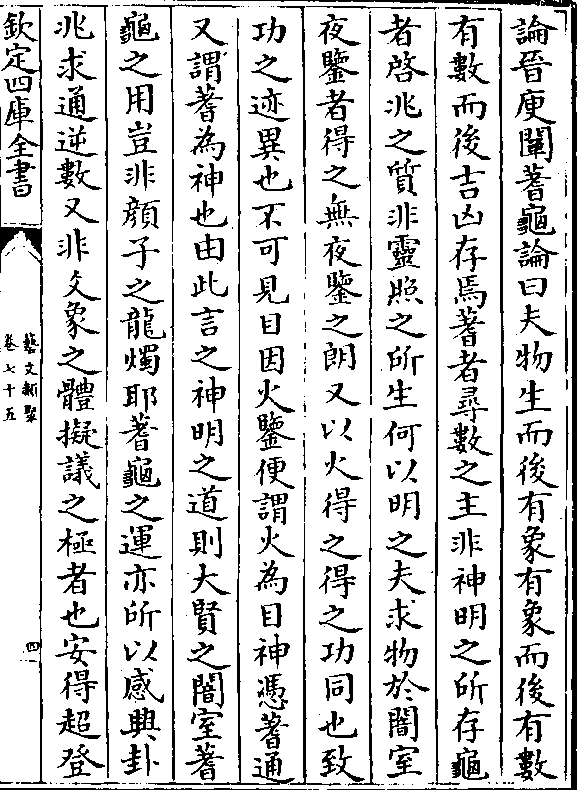 論晉庾闡蓍龜論曰夫物生而後有象有象而後有數
有數而後吉凶存焉蓍者尋數之主非神明之所存龜
者啓兆之質非靈照之所生何以明之夫求物於闇室
夜鑒者得之無夜鑒之朗又以火得之得之功同也致
功之迹異也不可見目因火鑒便謂火為目神憑蓍通
又謂蓍為神也由此言之神明之道則大賢之闇室蓍
龜之用豈非顔子之龍燭耶蓍龜之運亦所以感興卦
兆求通逆數又非爻象之體擬議之極者也安得超登
欽定四庫全書
藝文類聚
卷七十五
四